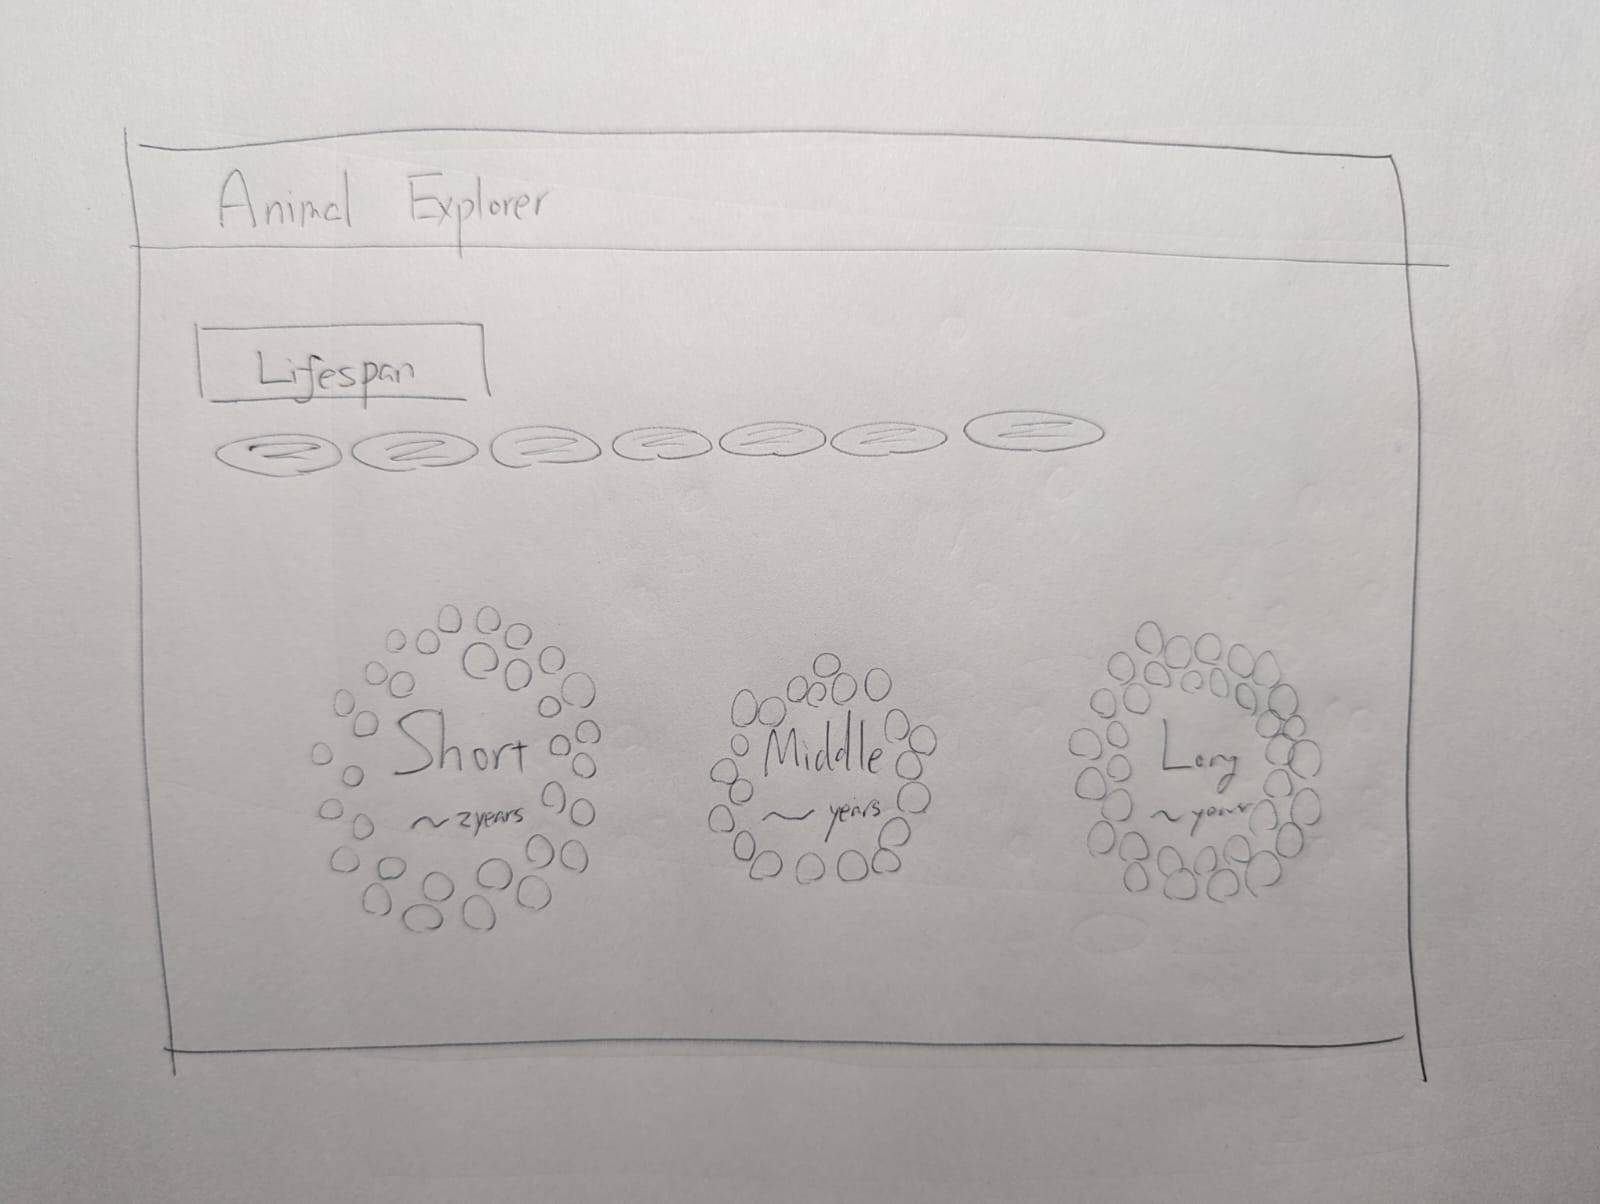 Animal Explorer
Lifespan
Short
~2years
Middle
~ years
Long
~years